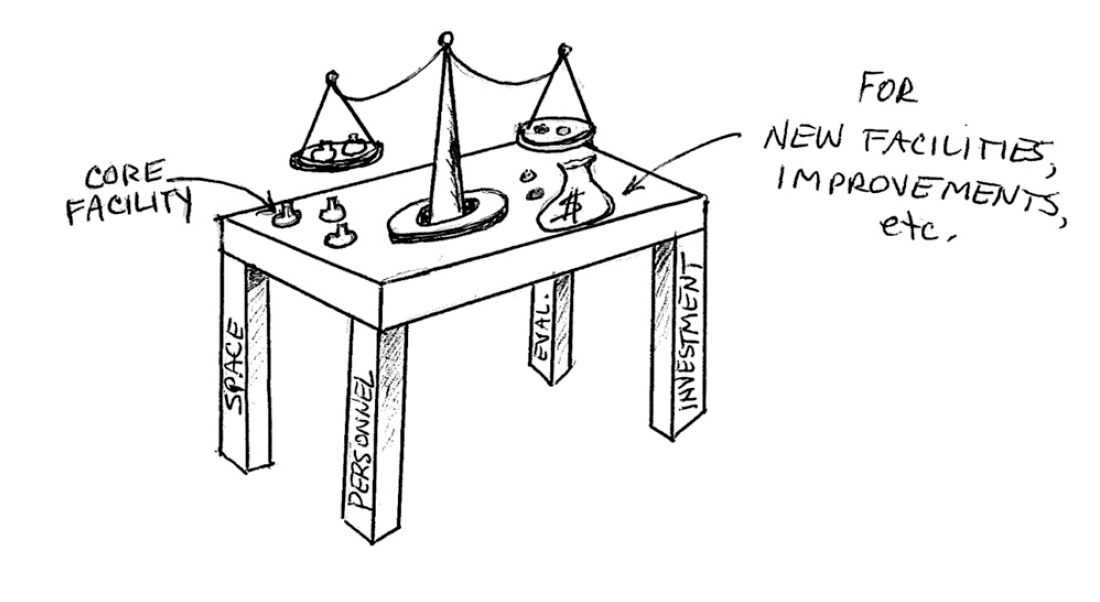 CORE
FACILITY
FOR
NEW FACILITIES,
IMPROVEMENTS,
etc.
$
SPACE
PERSONNEL
EVAL.
INVESTMENT